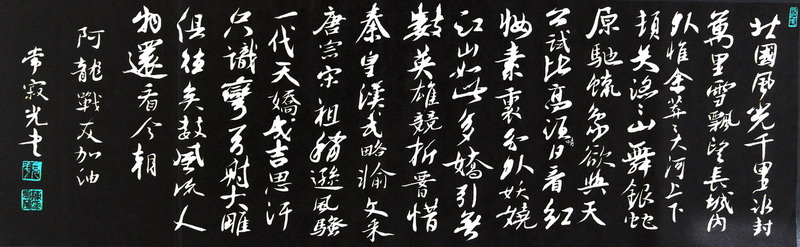 北國風光千里冰封
萬里雪飄望長城內
外惟余莽々大河上下
頓失滔々山舞銀蛇
原馳蠟象欲與天
公試比高須晴日看紅
妝素裹分外妖嬈
江山如此多嬌引無
數英雄競折腰惜
秦皇漢武略輸文采
唐宗宋祖稍遜風騷
一代天嬌成吉思汗
只識彎弓射大雕
俱往矣數風流人
物還看今朝
阿龍戰友加油
常寂光书